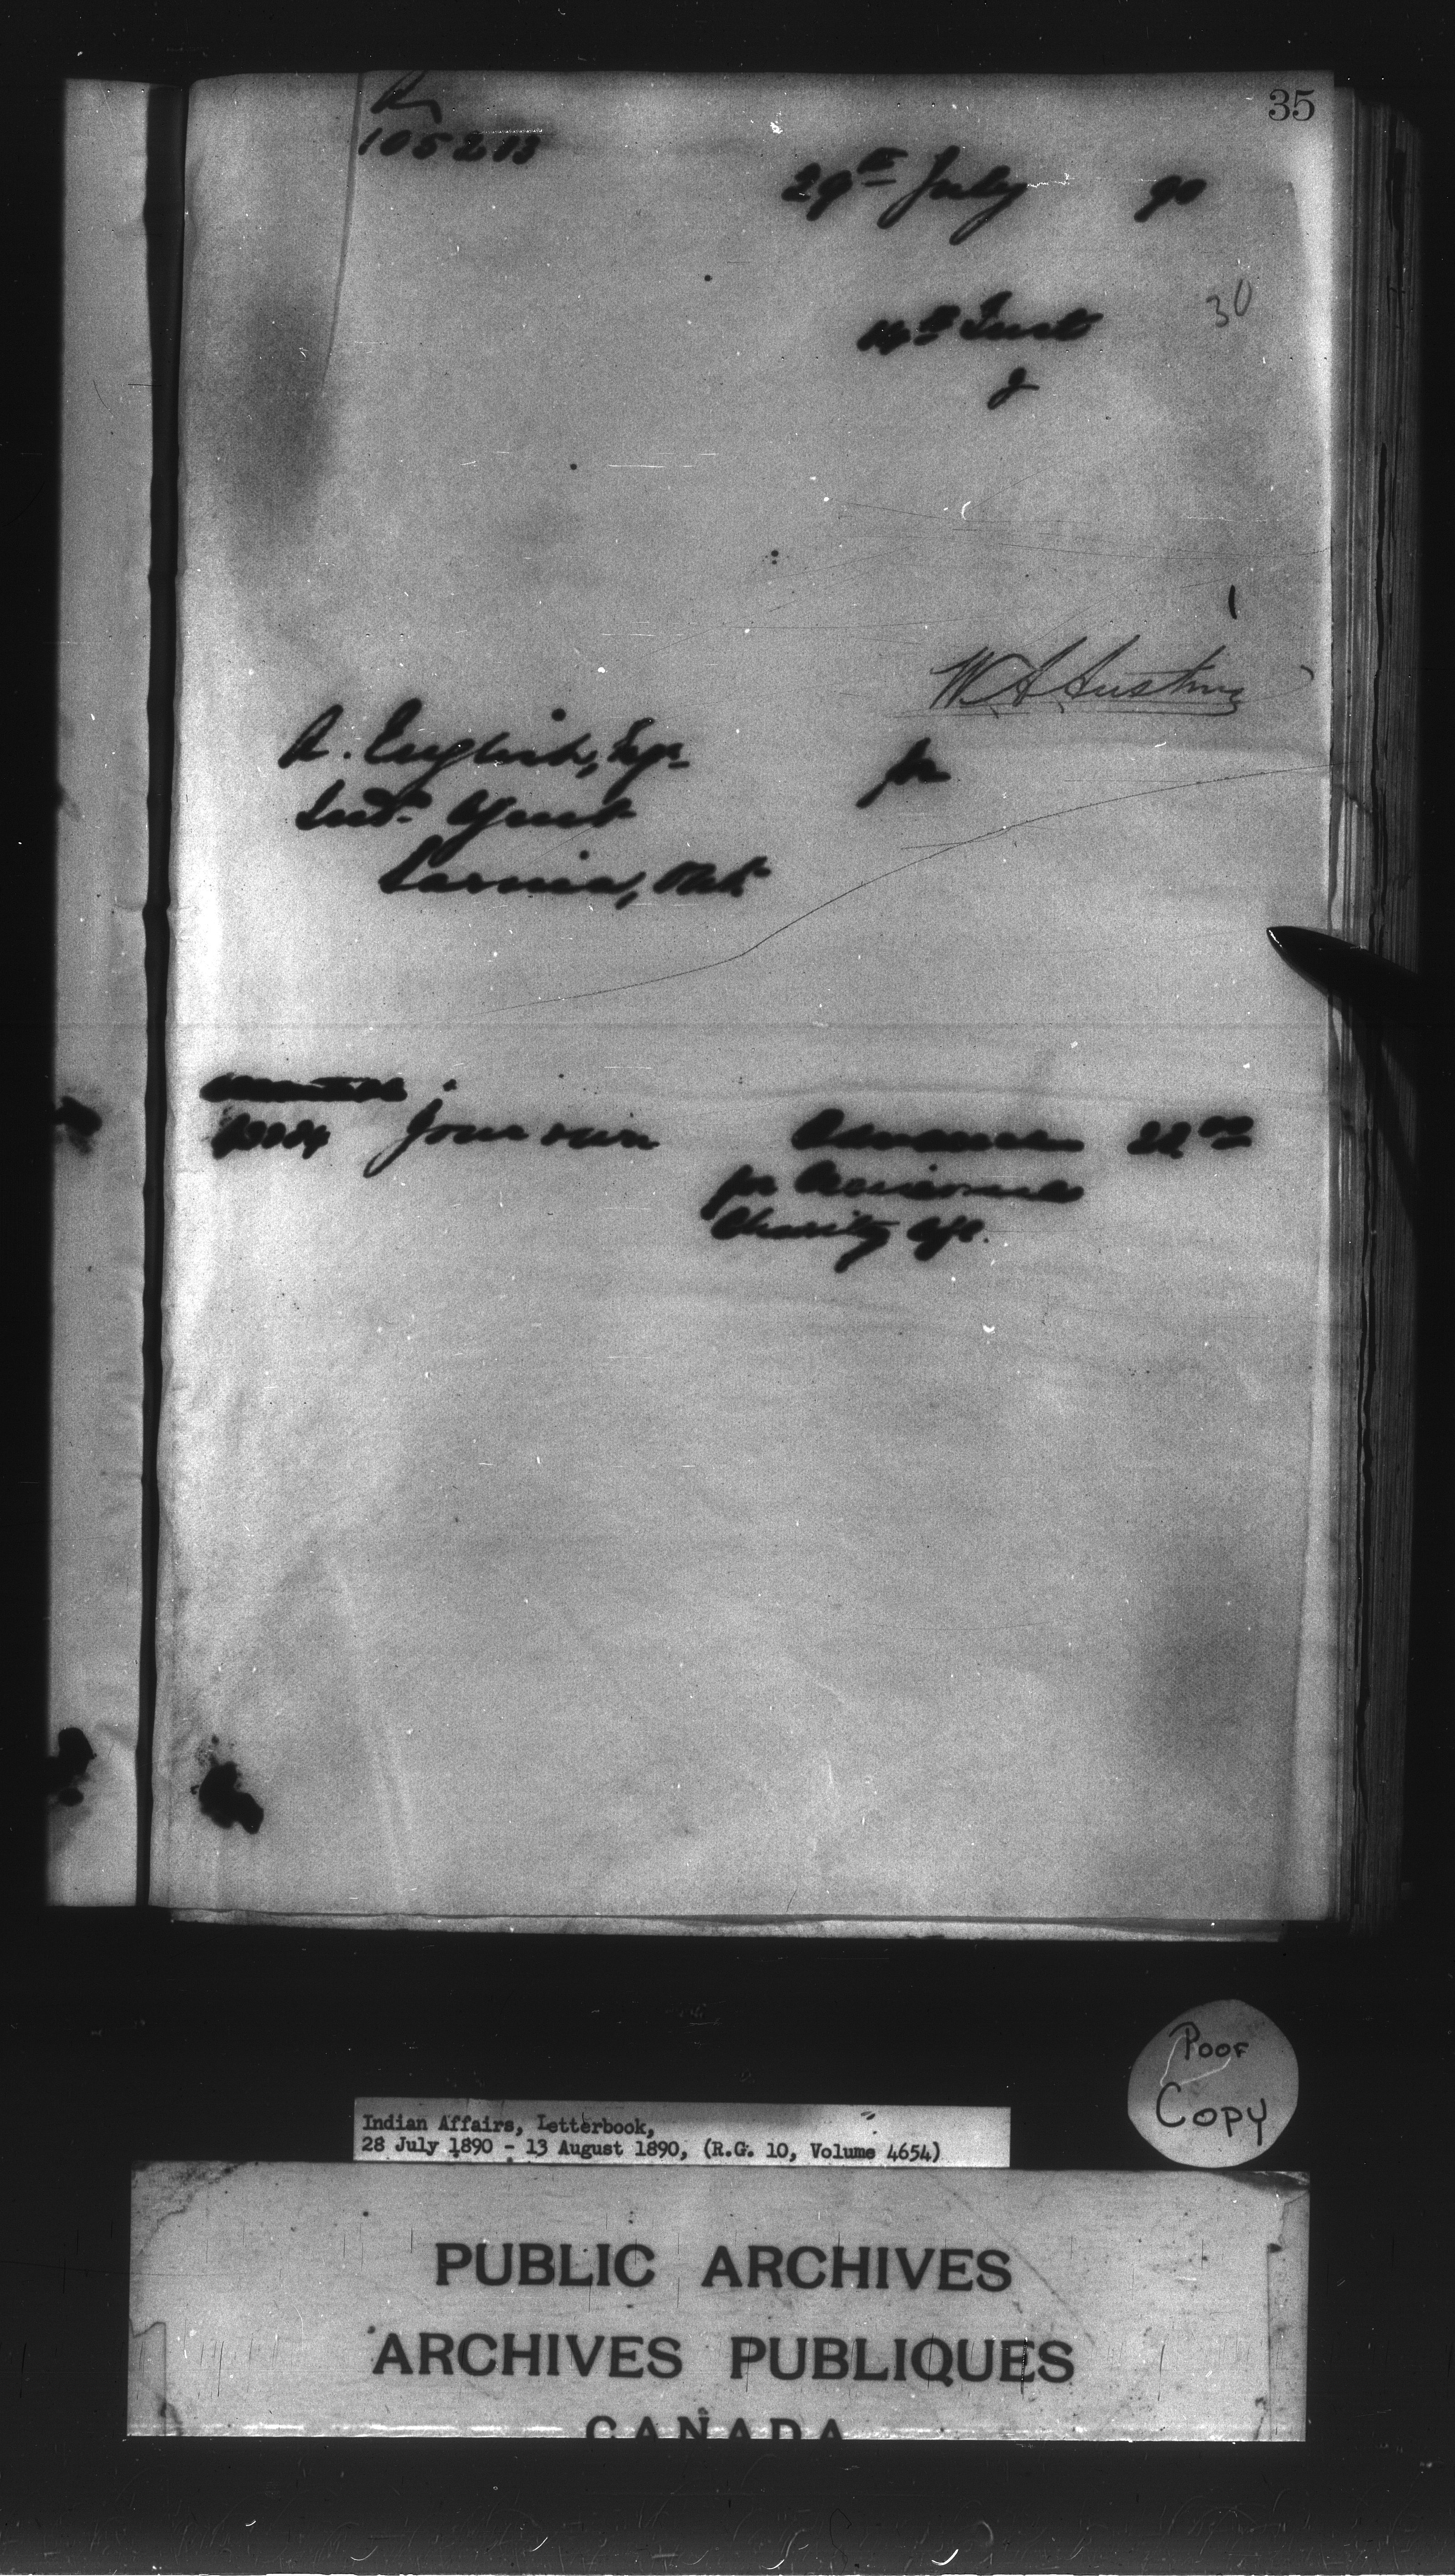 35
105213
29th July 90
30
14th Inst
W. A. Austin
A. English, Esq.
for
Ind. Agent
Sarnia, Ont.
Your own Advance 22 00
for
Charity a/c.
Poor
Copy
Indian Affairs, Letterbook,
28 July 1890 - 13 August 1890, (R.G. 10, Volume 4654)
PUBLIC ARCHIVES
ARCHIVES PUBLIQUES
CANADA